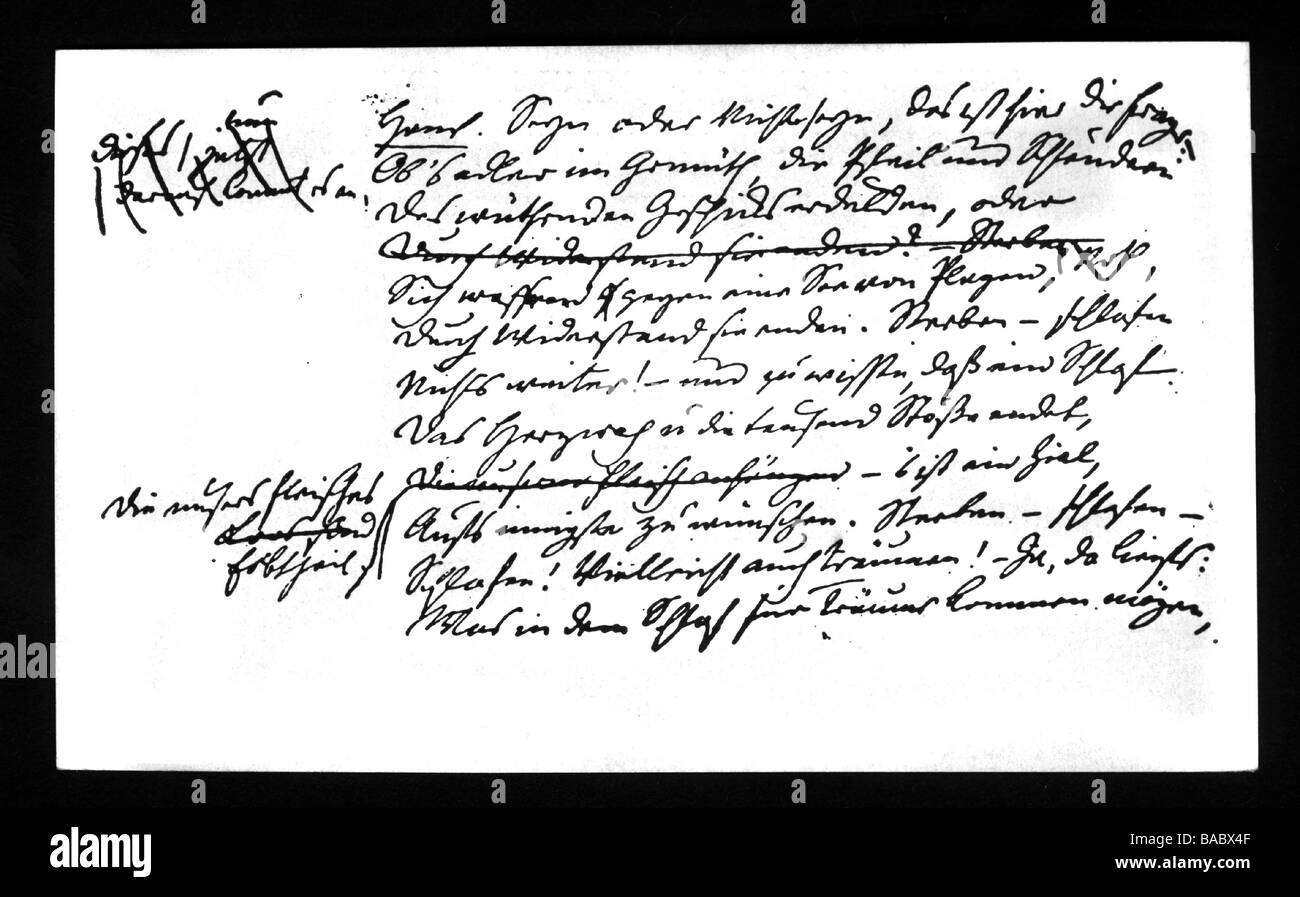 kommt es an.
Haml. Seyn oder Nichtseyn, das ist hier die Frage:
Ob's edler im Gemüth, die Pfeil' und Schleudern
Des wüthenden Geschicks erdulden, oder
Durch Widerstand sie enden? – Sterben
Sich waffnend gegen eine See von Plagen,
Durch Widerstand sie enden. Sterben – schlafen
Nichts weiter! – und zu wissen, daß ein Schlaf
Das Herzweh u die tausend Stöße endet,
Die unserm Fleisch anhängen – 's ist ein Ziel,
Aufs innigste zu wünschen. Sterben – schlafen –
Schlafen! Vielleicht auch träumen! – Ja, da liegts:
Was in dem Schlaf für Träume kommen mögen,
Die unsers Fleisches
Erbtheil,
alamy
Image ID: BABX4F
www.alamy.com